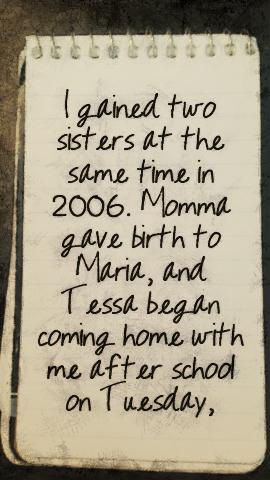 I gained two
sisters at the
same time in
2006. Momma
gave birth to
Maria, and
Tessa began
coming home with
me after school
on Tuesday,